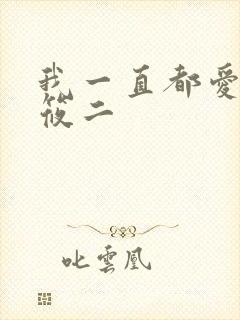 我一直都愛
筱二
叱雲凰